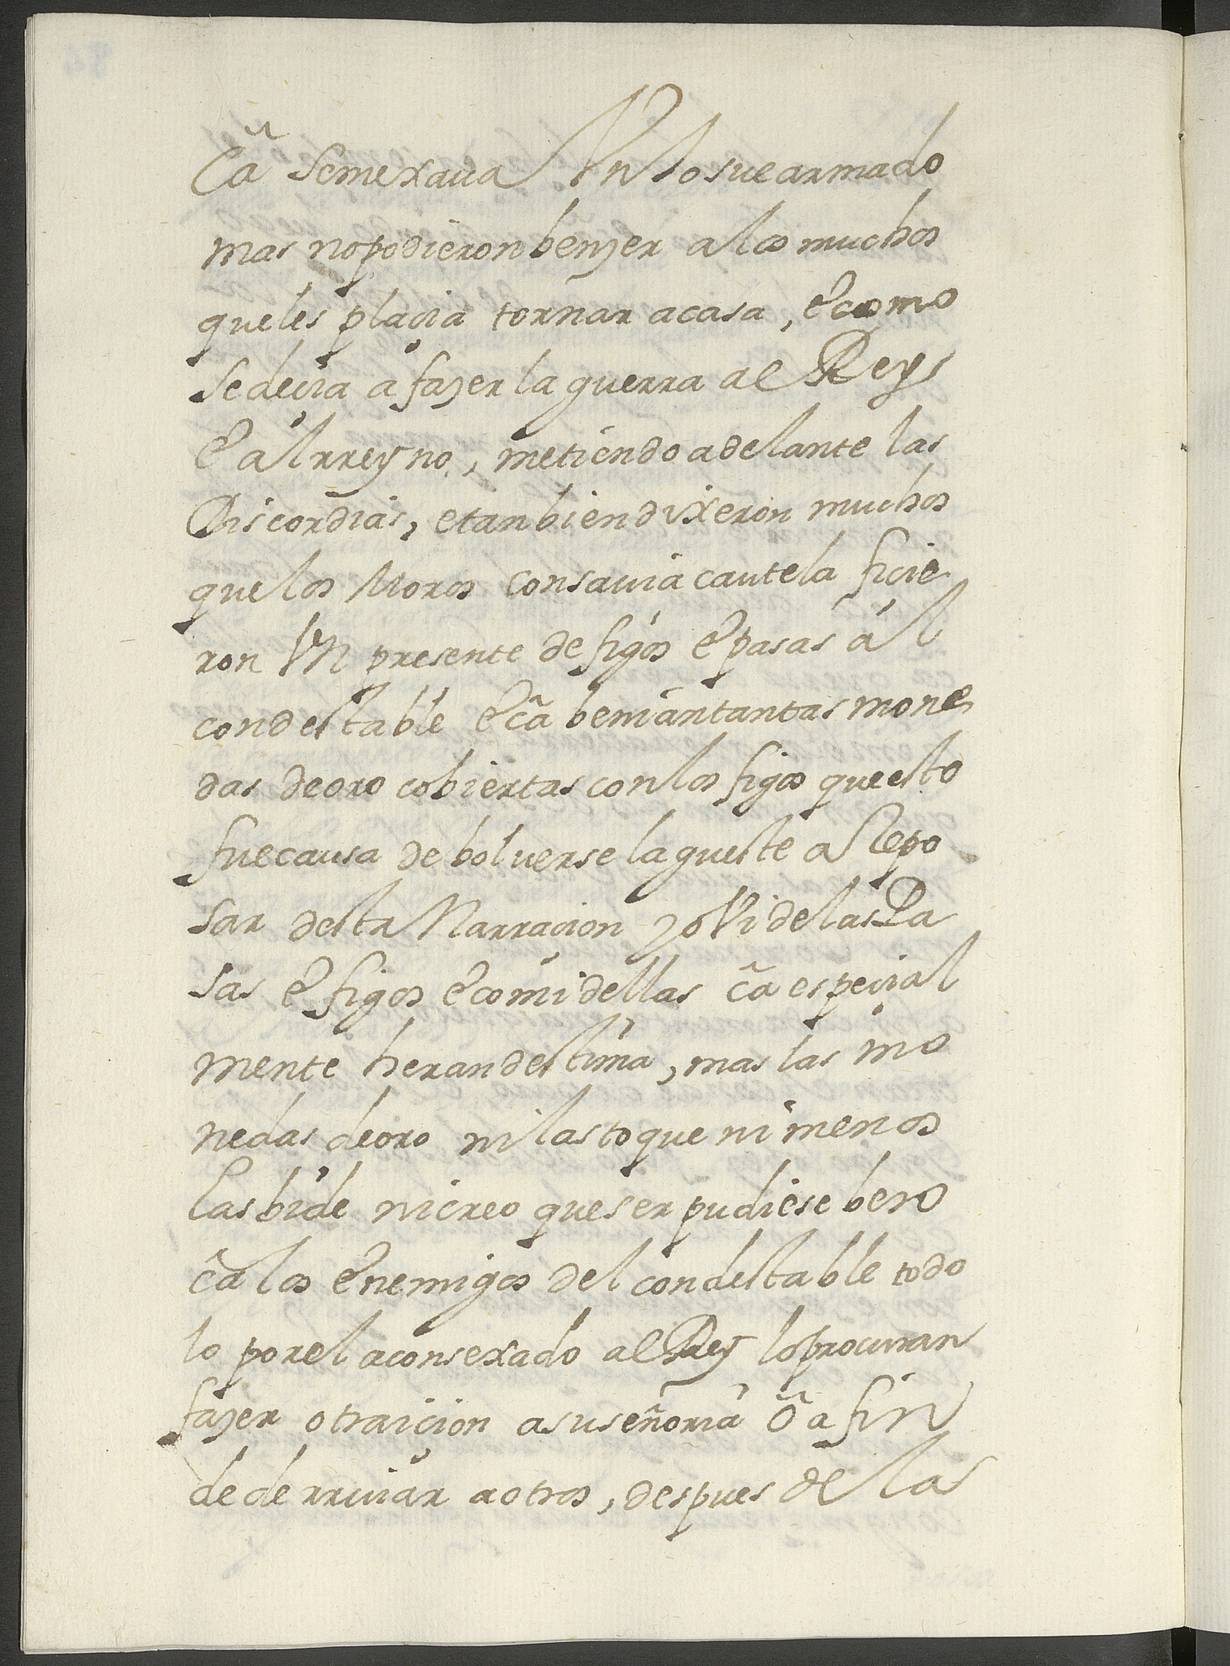 Cã semexaua Vn Josue armado
mas no podieron benzer a los muchos
que les placia tornar a casa, e como
se decia a fazer la guerra al Rey
e al rreyno, metiendo adelante las
Discordias, e tanbien dixeron muchos
que los Moros con sauia cautela ficie
ron Vn presente de figos e pasas ál
condestable e cã benian tantas mone
das de oro cobiertas con los figos que esto
fue causa de bolverse la gueste a Repo
sar desta Narracion yo Vi de las Pa
sas e figos e comi dellas cã especial
mente heran destima, mas las mo
nedas de oro ni las toque ni menos
las bide ni creo que ser pudiese bero
cã los enemigos del condestable todo
lo por el aconsexado al Rey lo procuran
fazer o traicion a su señoria õ a fin
de derriuar a otros, despues de las